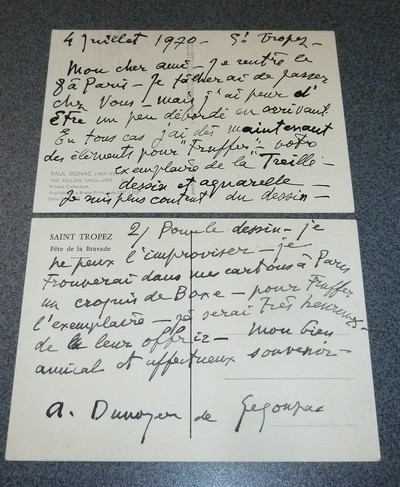 4 Juillet 1970 - St Tropez -
Mon cher ami - Je rentre le
8 à Paris - Je tâcherai de passer
chez vous - mais j'ai peur d'
être un peu débordé en arrivant.
En tous cas j'ai dès maintenant
des éléments pour "truffer" votre
PAUL SIGNAC
THE YELLOW SAILS
Private Collection
exemplaire de la Treille -
dessin et aquarelle -
Je suis plus content du dessin -
SAINT TROPEZ
Fête de la Bravade
2) Pour le dessin - je
ne peux l'improviser - je
trouverai dans mes cartons à Paris
un croquis de Boxe - pour truffer
l'exemplaire - je serai très heureux -
de le leur offrir - Mon bien
amical et affectueux souvenir -
A. Dunoyer de Segonzac